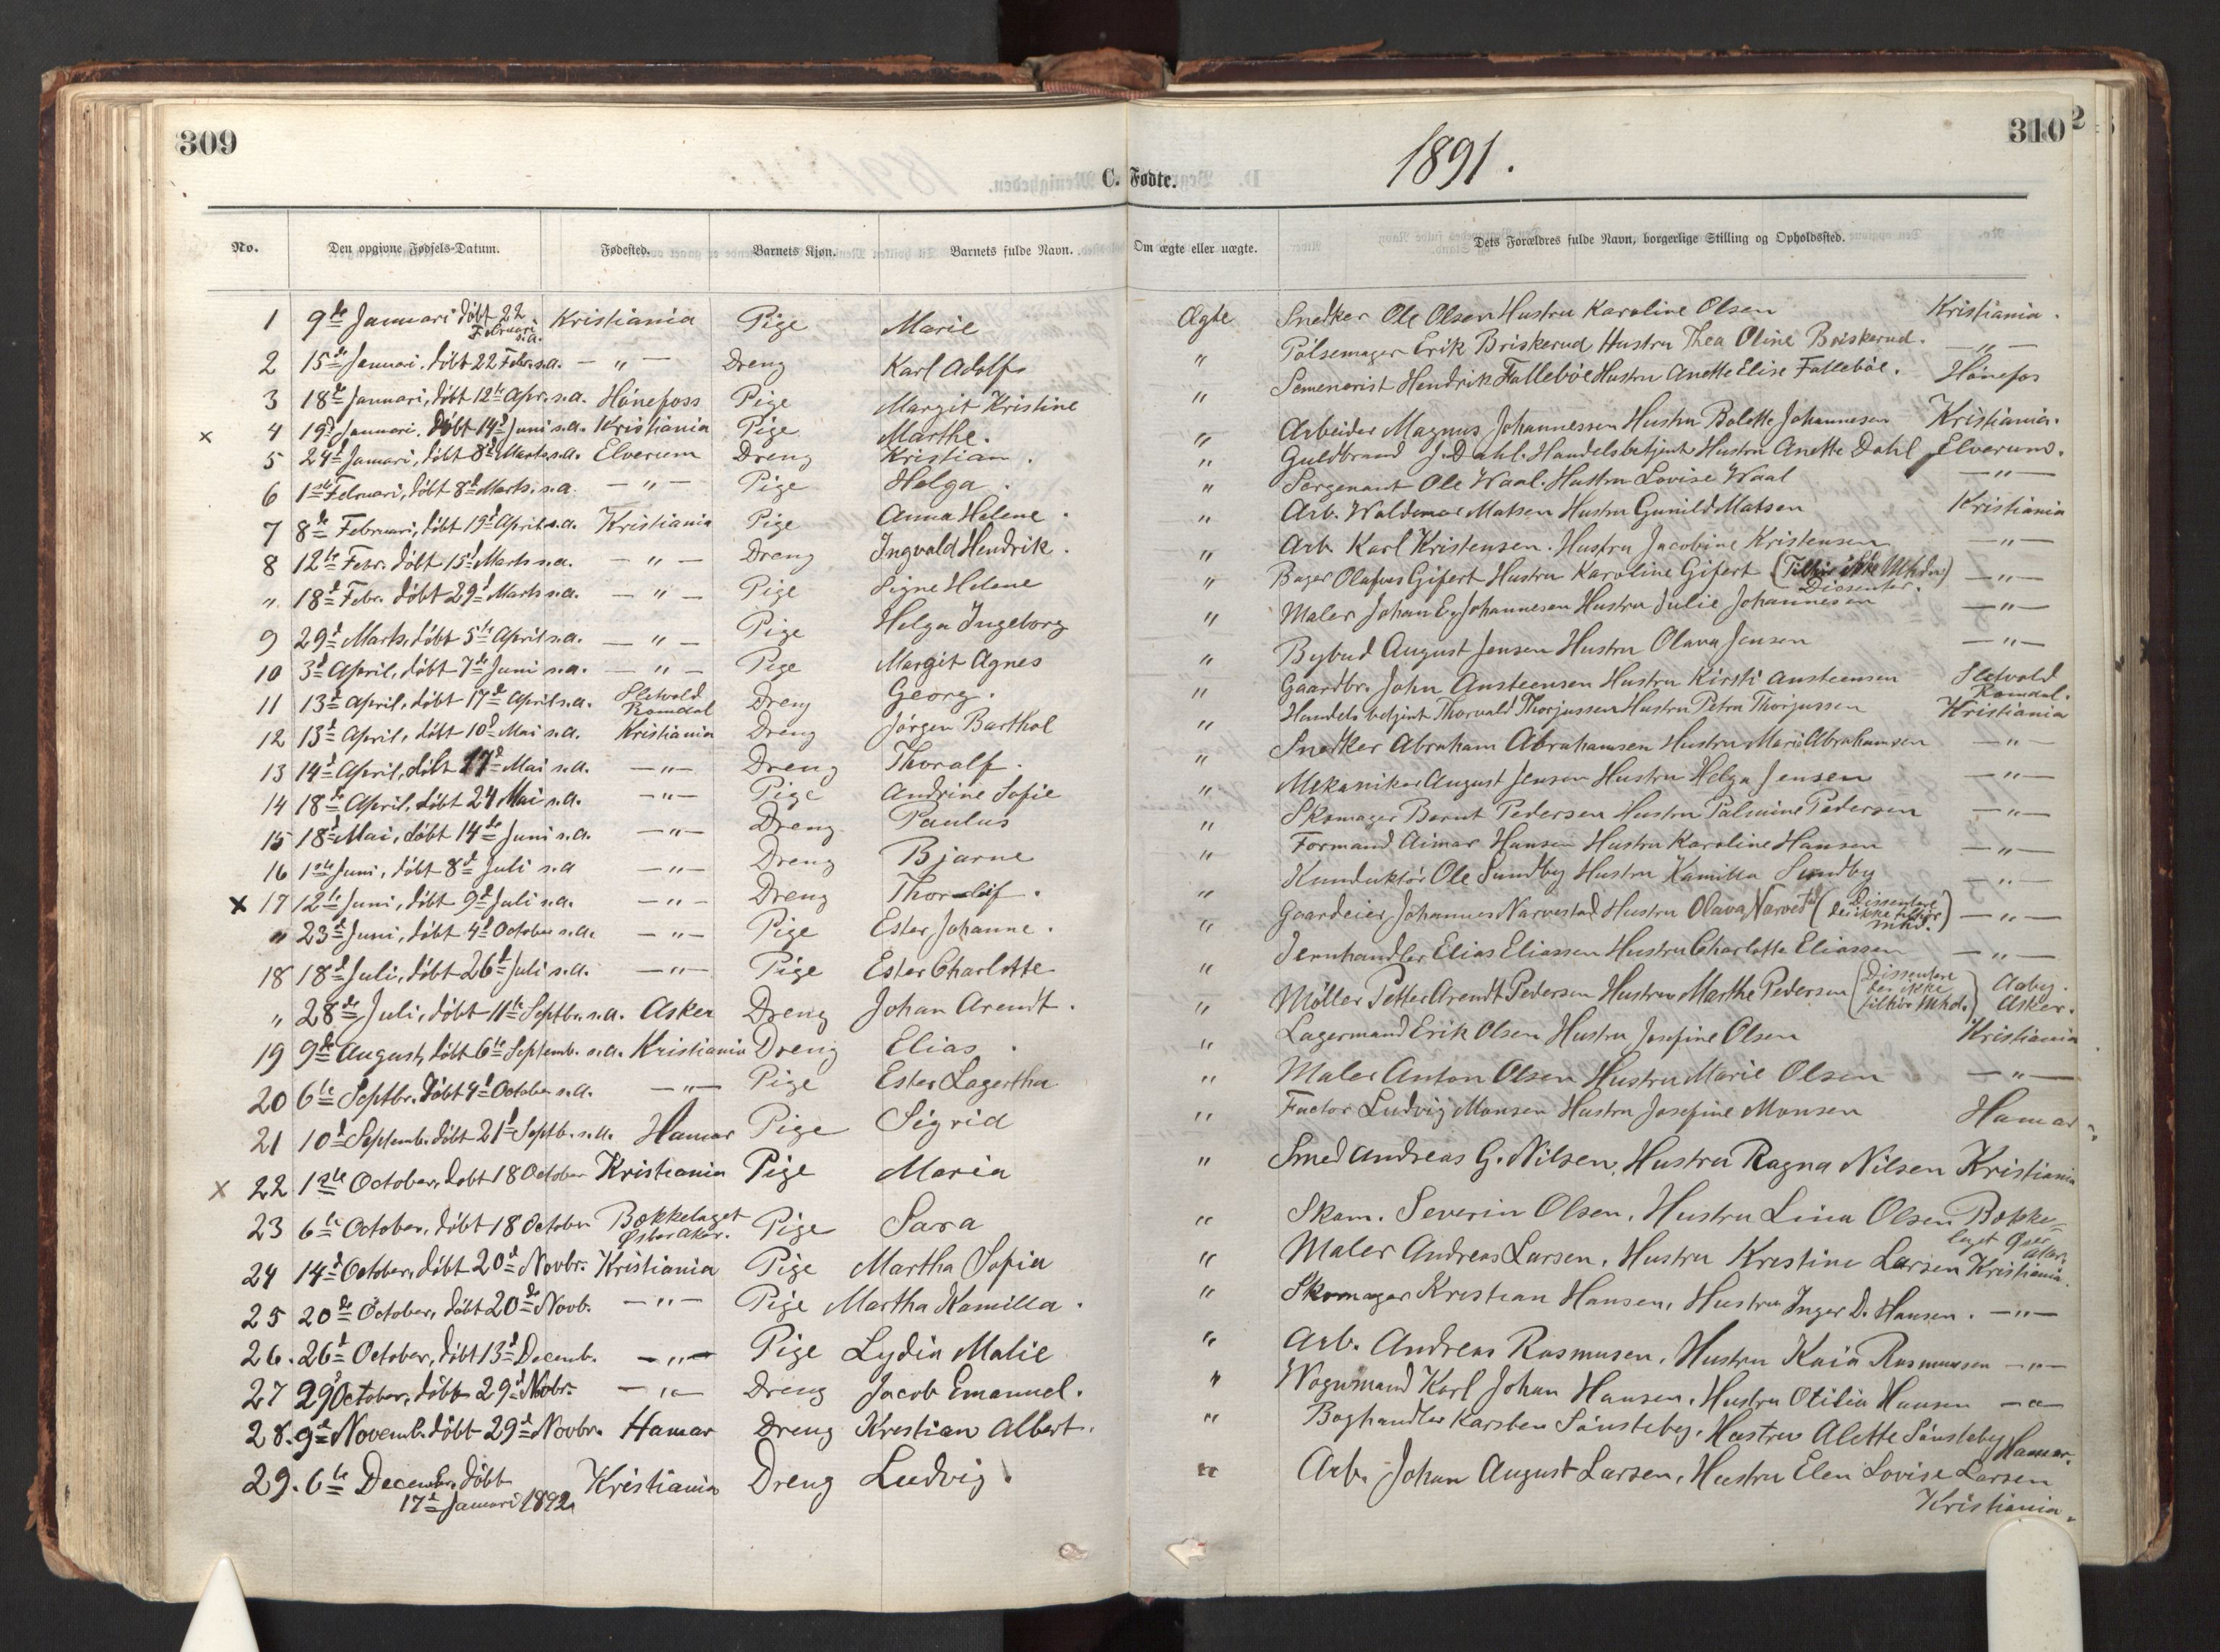 309
310
2
1891.
C. Fødte.
No. Den opgivne Fødsels-Datum. Fødested. Barnets Kjøn. Barnets fulde Navn. Om ægte eller uægte. Dets Forældres fulde Navn, borgerlige Stilling og Opholdssted.
1 9de Januari døbt 22 Februari s.a. Kristiania Pige Marie Ægte Snedker Ole Olsen Hustru Karoline Olsen Kristiania.
2 15de Januari. døbt 22 Febr. s.a. — " — Dreng Karl Adolf " Pølsemager Erik Briskerud Hustru Thea Oline Briskerud. — " —
3 18d Januari, døbt 12te Apr. s.a. Hønefoss Pige Margit Kristine " Semenarist Hendrik Fallebøe Hustru Anette Elise Fallebøe. Hønefos
x 4 19d Januari. døbt 14d Juni s.a. Kristiania Pige Marthe. " Arbeider Magnus Johannessen Hustru Bolette Johannesen Kristiania.
5 24d Januari, døbt 8d Marts s.a. Elverum Dreng Kristian. " Guldbrand J. Dahl. Handelsbetjent Hustru Anette Dahl Elverum.
6 1ste Februari, døbt 8d Marts. s.a. — " — Pige Helga. " Sergenant Ole Waal. Hustru Lovise Waal — " —
7 8de Februari, døbt 19d April s.a. Kristiania Pige Anna Helene. " Arb. Waldemar Matsen Hustru Gunild Matsen Kristiania
8 12te Febr. døbt 15d Marts s.a. — " — Dreng Ingvald Hendrik. " Arb. Karl Kristensen. Hustru Jacobine Kristensen — " —
" 18d Febr. døbt 29d Marts s.a. — " — Pige Signe Helene " Bager Olafus Gifert Hustru Karoline Gifert (Tilhør ikke Mhdn) Dissenter. — " —
9 29d Marts, døbt 5te April s.a. — " — Pige Helga Ingeborg " Maler Johan E. Johannesen Hustru Julie Johannesen — " —
10 3d April, døbt 7de Juni s.a. — " — Pige Margit Agnes " Bybud August Jensen Hustru Olava Jensen — " —
11 13d April, døbt 17d April s.a. Sletvold Romdal Dreng Georg. " Gaardbr. John Austeensen Hustru Kirsti Austeensen Sletvold Romdal.
12 13d April, døbt 10d Mai s.a. Kristiania Dreng Jørgen Barthol " Handelsbetjent Thorvald Thorjussen Hustru Petra Thorjussen Kristiania
13 14d April, døbt 17d Mai s.a. — " — Dreng Thoralf. " Snedker Abraham Abrahamsen Hustru Marie Abrahamsen — " —
14 18de April, døbt 24 Mai s.a. — " — Pige Andrine Sofie " Mekaniker August Jensen Hustru Helga Jensen — " —
15 18d Mai, døbt 14de Juni s.a. — " — Dreng Paulus " Skomager Bernt Pedersen Hustru Palmine Pedersen — " —
16 1ste Juni, døbt 8d Juli s.a — " — Dreng Bjarne " Formand Aimar Hansen Hustru Karoline Hansen — " —
x 17 12te Juni, døbt 9d Juli s.a. — " — Dreng Thorleif. " Kunduktør Ole Sundby Hustru Kamilla Sundby — " —
" 23d Juni, døbt 4d October s.a. — " — Pige Ester Johanne. " Gaardeier Johannes Narvestad Hustru Olava Narvestad (Dissentere der ikke tilhør mhd.) — " —
18 18d Juli, døbt 26d Juli s.a. — " — Pige Ester Charlotte " Jernhandler Elias Eliassen Hustru Charlotte Eliassen — " —
" 28de Juli, døbt 11te Septbr. s.a. Asker Dreng Johan Arendt. " Møller Petter Arendt Pedersen Hustru Marthe Pedersen (Dissentere der ikke tilhør Mhd.) Aaby. Asker.
19 9de August, døbt 6te Septemb. s.a. Kristiania Dreng Elias. " Lagermand Erik Olsen Hustru Josefine Olsen Kristiania
20 6te Septbr. døbt 4d October s.a. — " — Pige Ester Lagertha " Maler Anton Olsen Hustru Marie Olsen — " —
21 10d Septemb. døbt 21d Septb. s.a. Hamar Pige Sigrid " Factor Ludvig Monsen Hustru Josefine Monsen Hamar
x 22 1ste October, døbt 18 October Kristiania Pige Maria " Smed Andreas G. Nilsen, Hustru Ragna Nilsen Kristiania
23 6te October, døbt 18 October Bækkelaget Østeraker. Pige Sara " Skom. Severin Olsen, Hustru Lina Olsen Bækkelaget Øster aker.
24 14d October, døbt 20d Novbr. Kristiania Pige Martha Sofia " Maler Andreas Larsen, Hustru Krestine Larsen Kristiania.
25 20de October, døbt 20de Novb. — " — Pige Martha Kamilla. " Skomager Krestian Hansen, Hustru Inger D. Hansen. — " —
26. 26d October, døbt 13d Decemb. — " — Pige Lydia Malie " Arb. Andreas Rasmusen, Hustru Kaia Rasmussen — " —
27 29d October, døbt 29d Nobr. — " — Dreng Jacob Emanuel. " Vognmand Karl Johan Hansen, Hustru Otilia Hansen — " —
28. 9d Novemb. døbt 29d Novbr. Hamar Dreng Krestian Albert. " Boghandler Karsten Sønsteby, Hustru Alette Sønsteby Hamar.
29. 6te Decembr. døbt 17d Januari 1892 Kristiania Dreng Ludvig. " Arb. Johan August Larsen, Hustru Elen Lovise Larsen Kristiania.